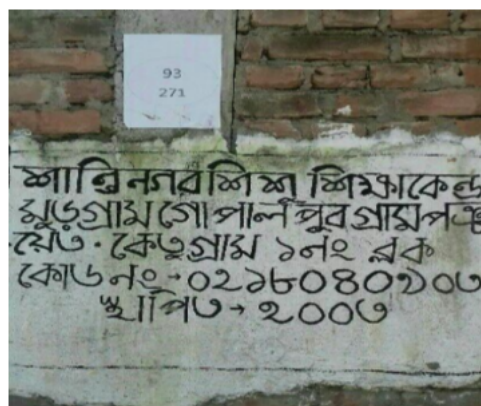 93
271
শান্তিনগর শিশু শিক্ষাকেন্দ্র
মুড়গ্রাম গোপালপুর গ্রাম পঞ্চা
য়েত . কেতুগ্রাম ১নং ব্লক
কোড নং → ০২১৮০৪০১০৩
স্থাপিত → ২০০৩